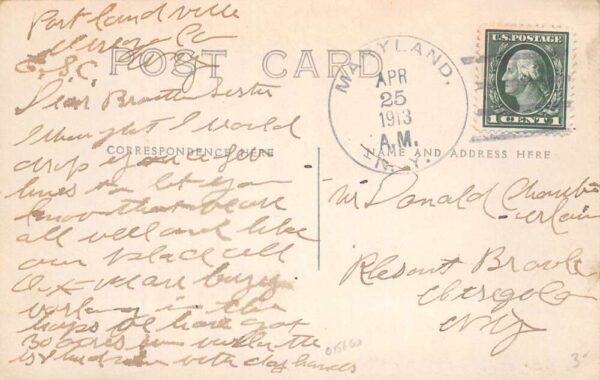 Portlandville
Otsego Co
N Y
E.S.C.
POST CARD
MARYLAND.
APR
25
1913
A.M.
N.Y.
U.S. POSTAGE
1 CENT 1
Dear Brother Sister
I thought I would
drop you a few
CORRESPONDENCE HERE
lines to let you
know that we are
all well and like
our place all
O.K. we are busy
working in the
hops We have got
30 acres
with day hands
NAME AND ADDRESS HERE
Mr Donald Chamb-
erlain
Plesant Brook
Otsego Co
N Y